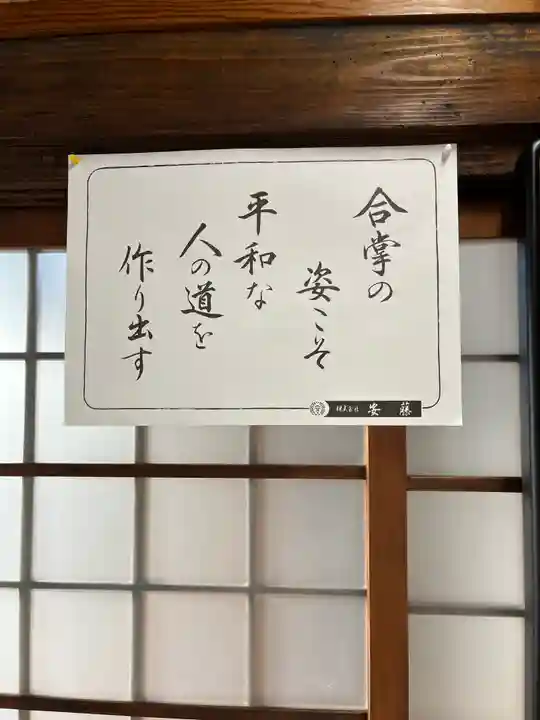 合掌の
姿こそ
平和な
人の道を
作り出す
株式会社 安藤